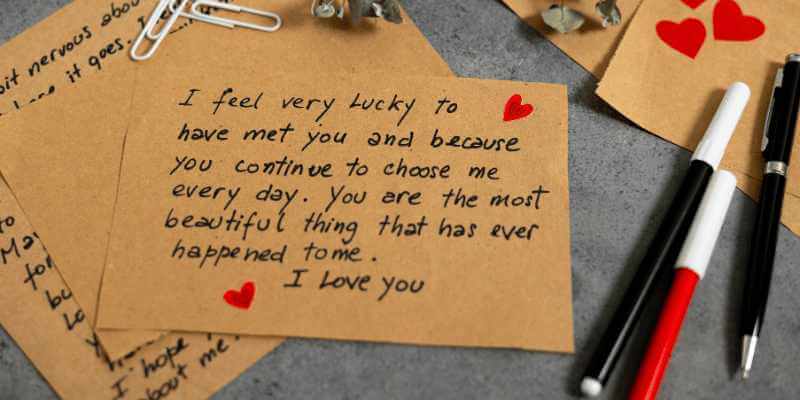 bit nervous abou
it goes.
I feel very Lucky to
have met you and because
you continue to choose me
every day. You are the most
beautiful thing that has ever
happened to me.
I Love you
to
Ma
for
bu
I hope
about me.